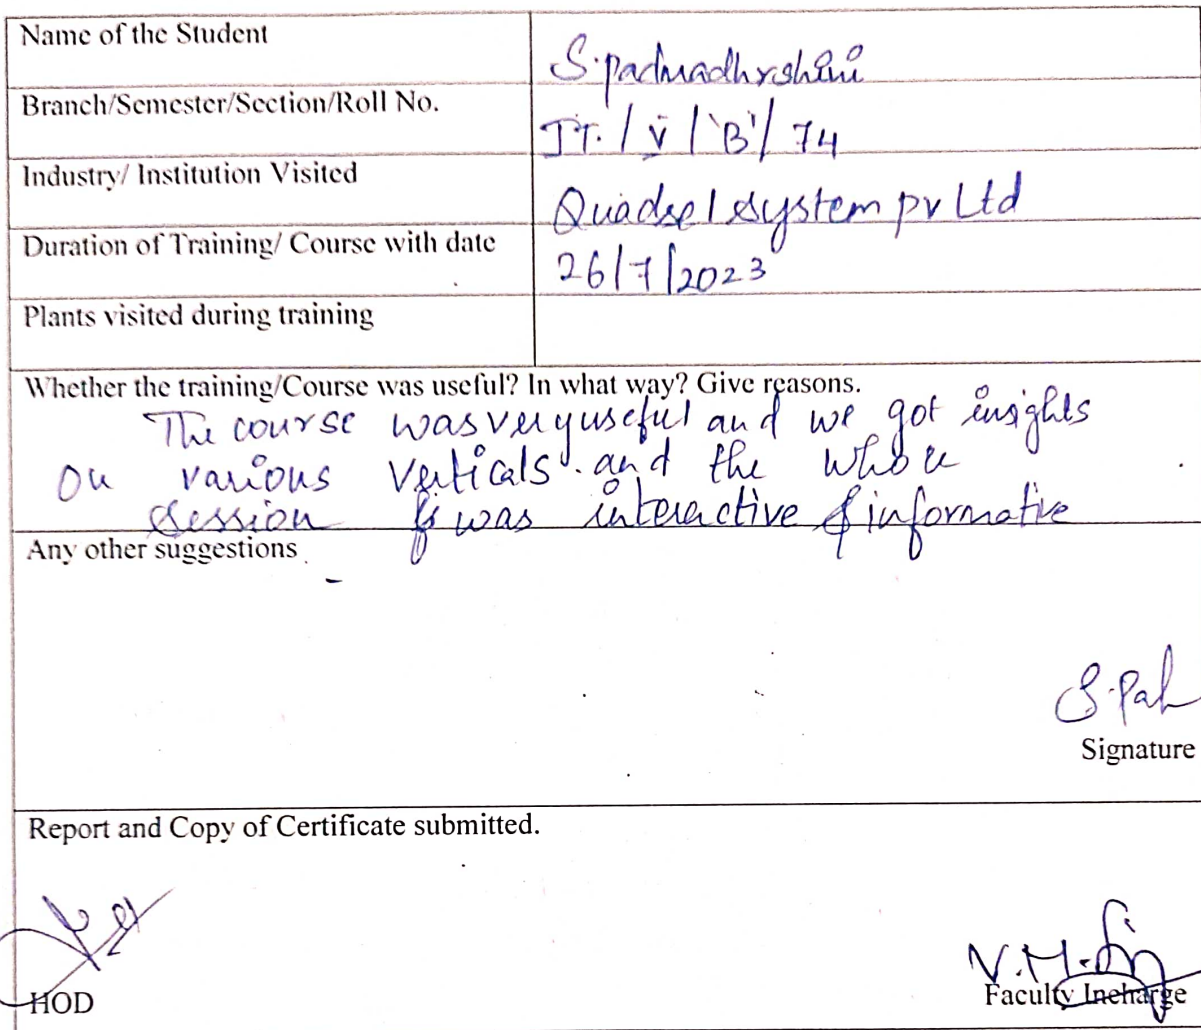 Name of the Student
S.padmadhrshini
Branch/Semester/Section/Roll No.
IT. / V / 'B' / 74
Industry/ Institution Visited
Quadsel system pv Ltd
Duration of Training/ Course with date
26/7/2023
Plants visited during training
Whether the training/Course was useful? In what way? Give reasons.
The course was very useful and we got insights
on various verticals. and the whole
session was interactive & informative
Any other suggestions
-
S.Pad
Signature
Report and Copy of Certificate submitted.
V.M.
HOD
Faculty Incharge